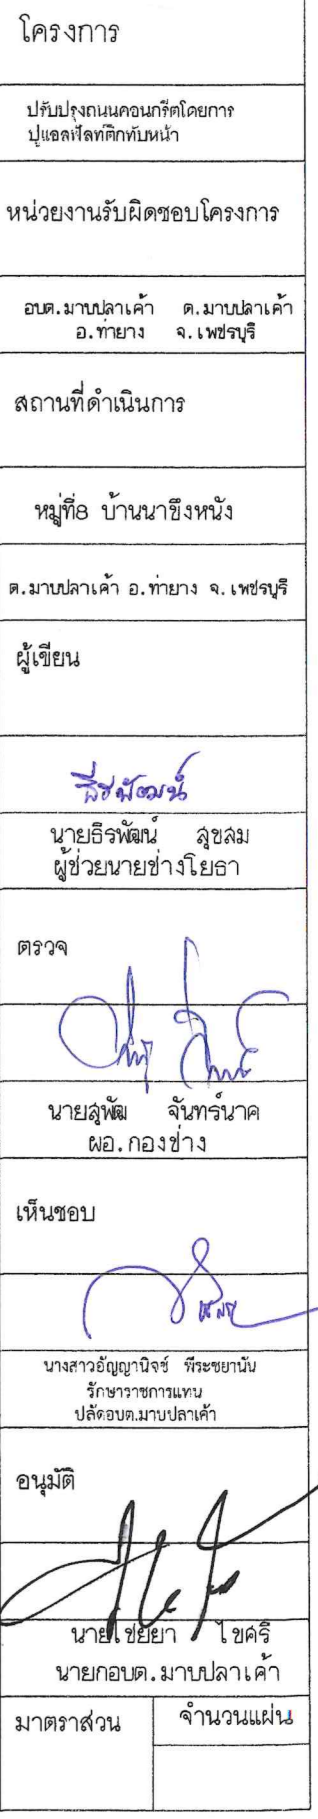 โครงการ
ปรับปรุงถนนคอนกรีตโดยการ
ปูแอสฟัลท์ติกทับหน้า
หน่วยงานรับผิดชอบโครงการ
อบต.มาบปลาเค้า ต.มาบปลาเค้า
อ.ท่ายาง จ.เพชรบุรี
สถานที่ดำเนินการ
หมู่ที่8 บ้านนาขึงหนัง
ต.มาบปลาเค้า อ.ท่ายาง จ.เพชรบุรี
ผู้เขียน
ธีรพัฒน์
นายธิรพัฒน์ สุขสม
ผู้ช่วยนายช่างโยธา
ตรวจ
นายสุพัฒ จันทร์นาค
ผอ.กองช่าง
เห็นชอบ
นางสาวอัญญานิจช์ พีระชยานัน
รักษาราชการแทน
ปลัดอบต.มาบปลาเค้า
อนุมัติ
นายไชยยา ไขศรี
นายกอบต.มาบปลาเค้า
มาตราส่วน จำนวนแผ่น